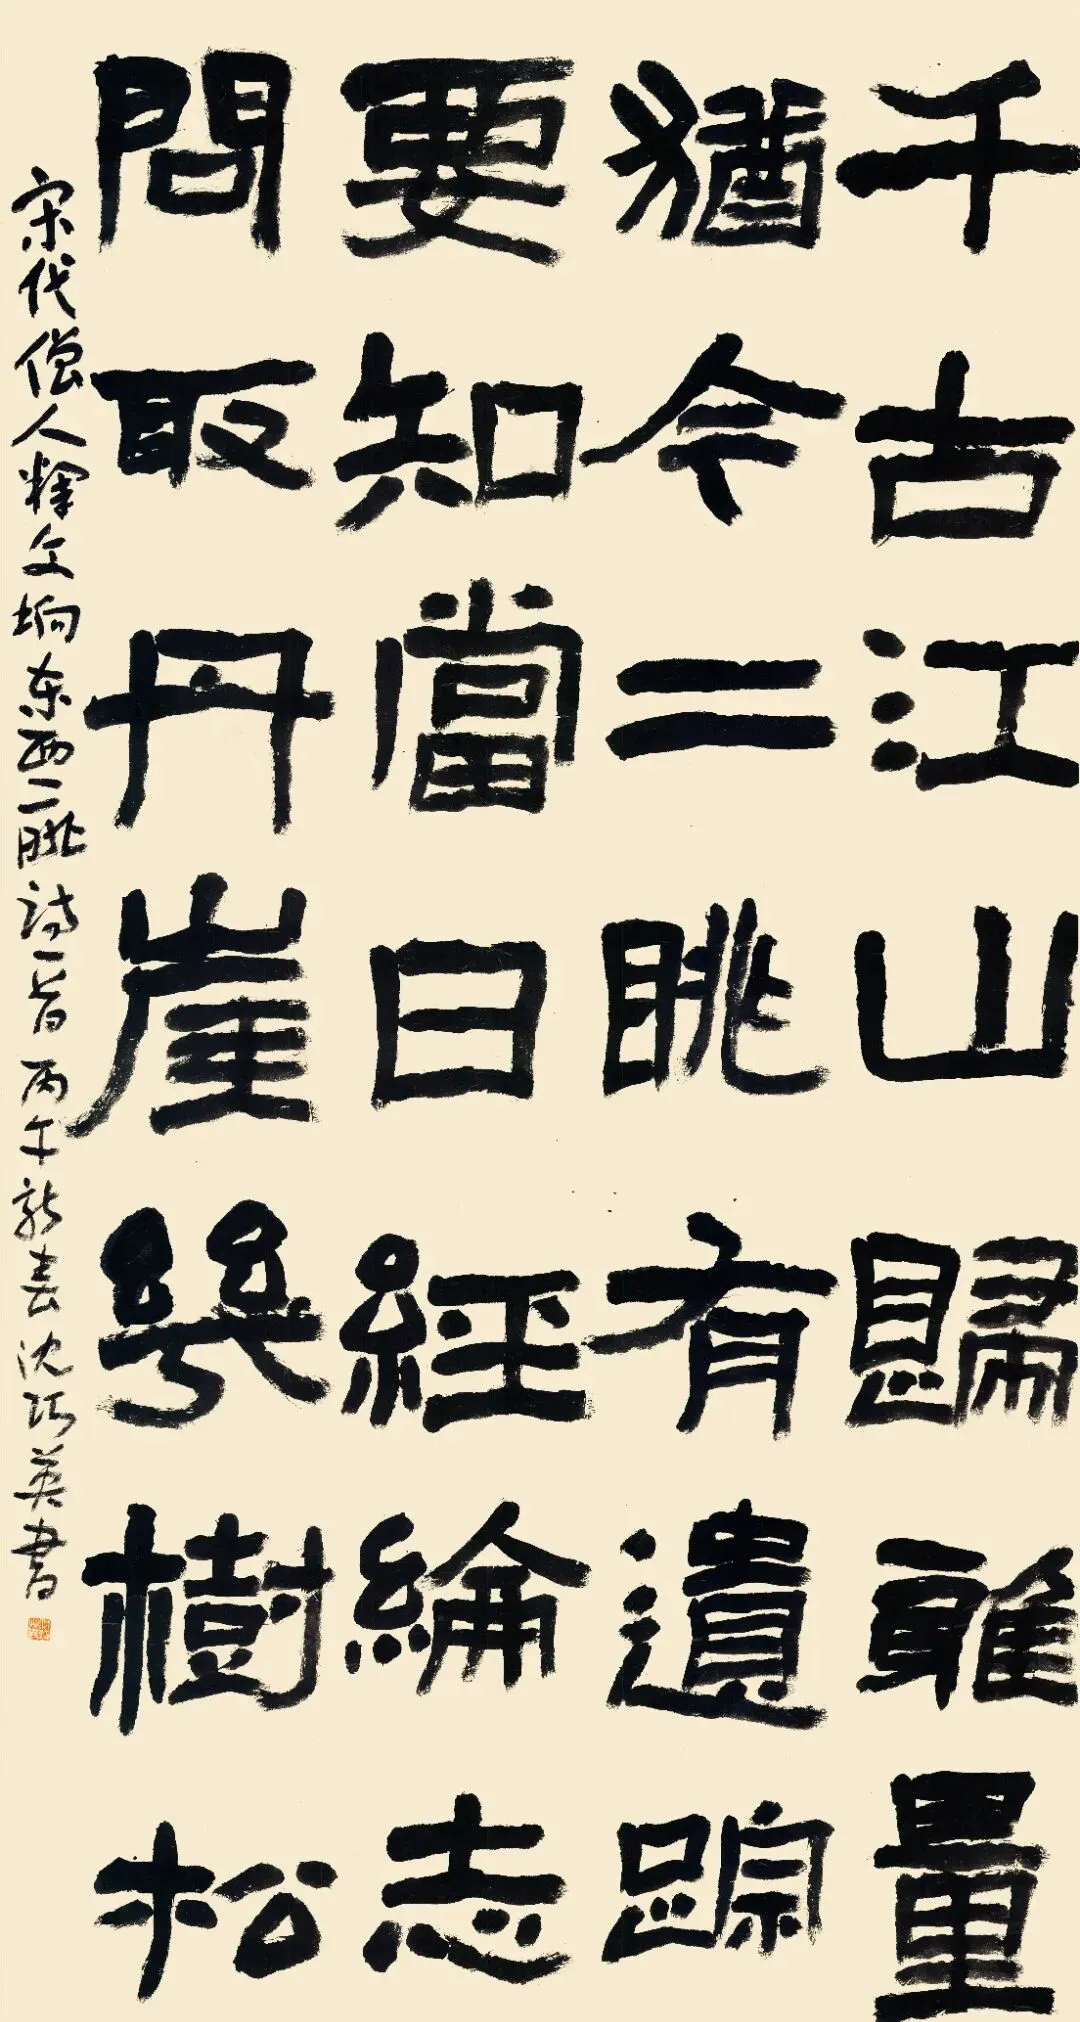 千古江山歸雅量
猶今二眺有遺踪
要知當日經綸志
問取丹崖幾樹松
宋代僧人釋文珦东西二眺詩一首 丙午新春 沈巧英書